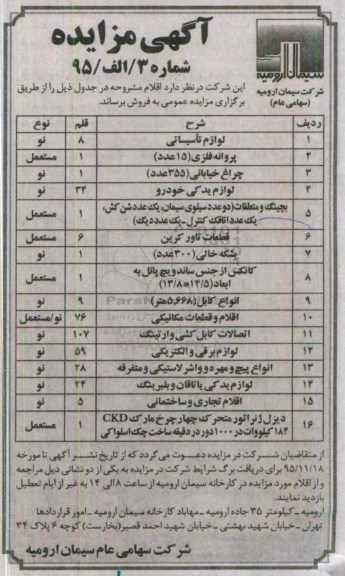 آگهی مزایده
شماره ۳/الف/۹۵
سیمان ارومیه
شرکت سیمان ارومیه
(سهامی عام)
این شرکت درنظر دارد اقلام مشروحه در جدول ذیل را از طریق
برگزاری مزایده عمومی به فروش برساند.
ردیف شرح قلم نوع
۱ لوازم تأسیساتی ۸ نو
۲ پروانه فلزی (۱۵عدد) ۱ مستعمل
۳ چراغ خیابانی (۳۵۵عدد) ۱ نو
۴ لوازم یدکی خودرو ۳۴ نو
۵ بچینگ و متعلقات (دوعدد سیلوی سیمان، یک عدد شن کش،
یک عدد اتاقک کنترل-یک عدد دیگ) ۱ مستعمل
۶ قطعات تاور کرین ۶ مستعمل
۷ بشکه خالی (۳۰۰عدد) ۱ نو
۸ کانکس از جنس ساندویچ پانل به
ابعاد (۱۴/۵*۱۳/۸) ۱ مستعمل
۹ انواع کابل (۵،۶۶۸متر) ۹ نو
۱۰ اقلام و قطعات مکانیکی ۷۶ نو/مستعمل
۱۱ اتصالات کابل کشی و ارتینگ ۱۰۷ نو
۱۲ لوازم برقی و الکتریکی ۵۹ نو
۱۳ انواع پیچ و مهره و واشر لاستیکی و متفرقه ۲۸ نو
۱۴ لوازم یدکی یاتاقان و بلبرینگ ۲۴ نو
۱۵ اقلام تجاری و ساختمانی ۵ نو
۱۶ دیزل ژنراتور متحرک چهار چرخ مارک CKD
۱۸۴ کیلووات در ۱۰۰۰ دور در دقیقه ساخت چک اسلواکی ۱ مستعمل
از متقاضیان شرکت در مزایده دعوت می گردد که از تاریخ نشر آگهی تا مورخه
۹۵/۱۱/۱۸ برای دریافت برگ شرایط شرکت در مزایده به یکی از دو نشانی ذیل مراجعه
و از اقلام مورد مزایده در کارخانه سیمان ارومیه از ساعت ۸ الی ۱۴ به غیر از ایام تعطیل
بازدید نمایند.
ارومیه-کیلومتر ۳۵ جاده ارومیه-مهاباد کارخانه سیمان ارومیه-امور قراردادها
تهران-خیابان شهید بهشتی-خیابان شهید احمد قصیر(بخارست) کوچه ۶ پلاک ۳۴
شرکت سهامی عام سیمان ارومیه